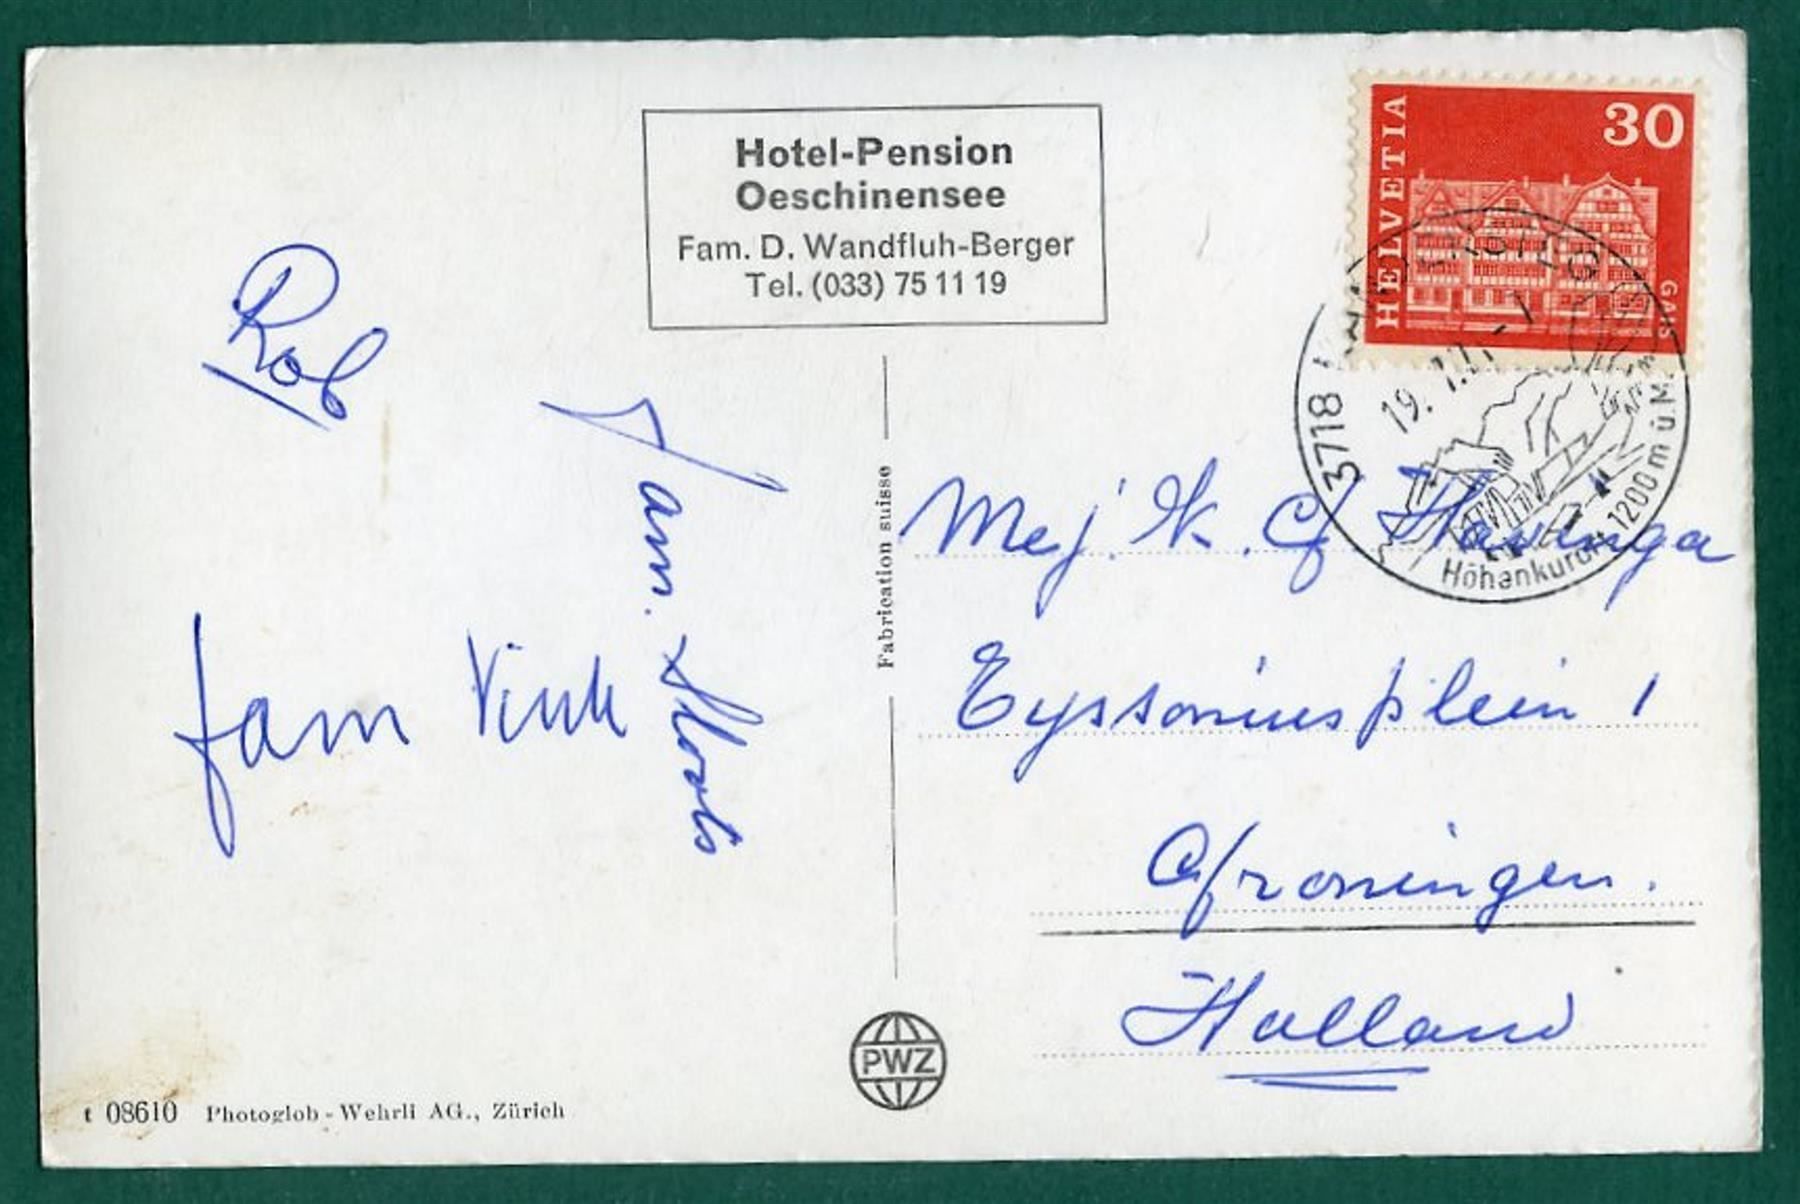 Hotel-Pension
Oeschinensee
Fam. D. Wandfluh-Berger
Tel. (033) 75 11 19
HELVETIA
30
GAIS
3718
19.
Höhenkurort 1200 m ü. M.
Rob
Fam.
fam Vink
Fabrication suisse
Mej. K. G. Havinga
Eyssoniusplein 1
Groningen.
Holland
PWZ
t 08610 Photoglob-Wehrli AG., Zürich